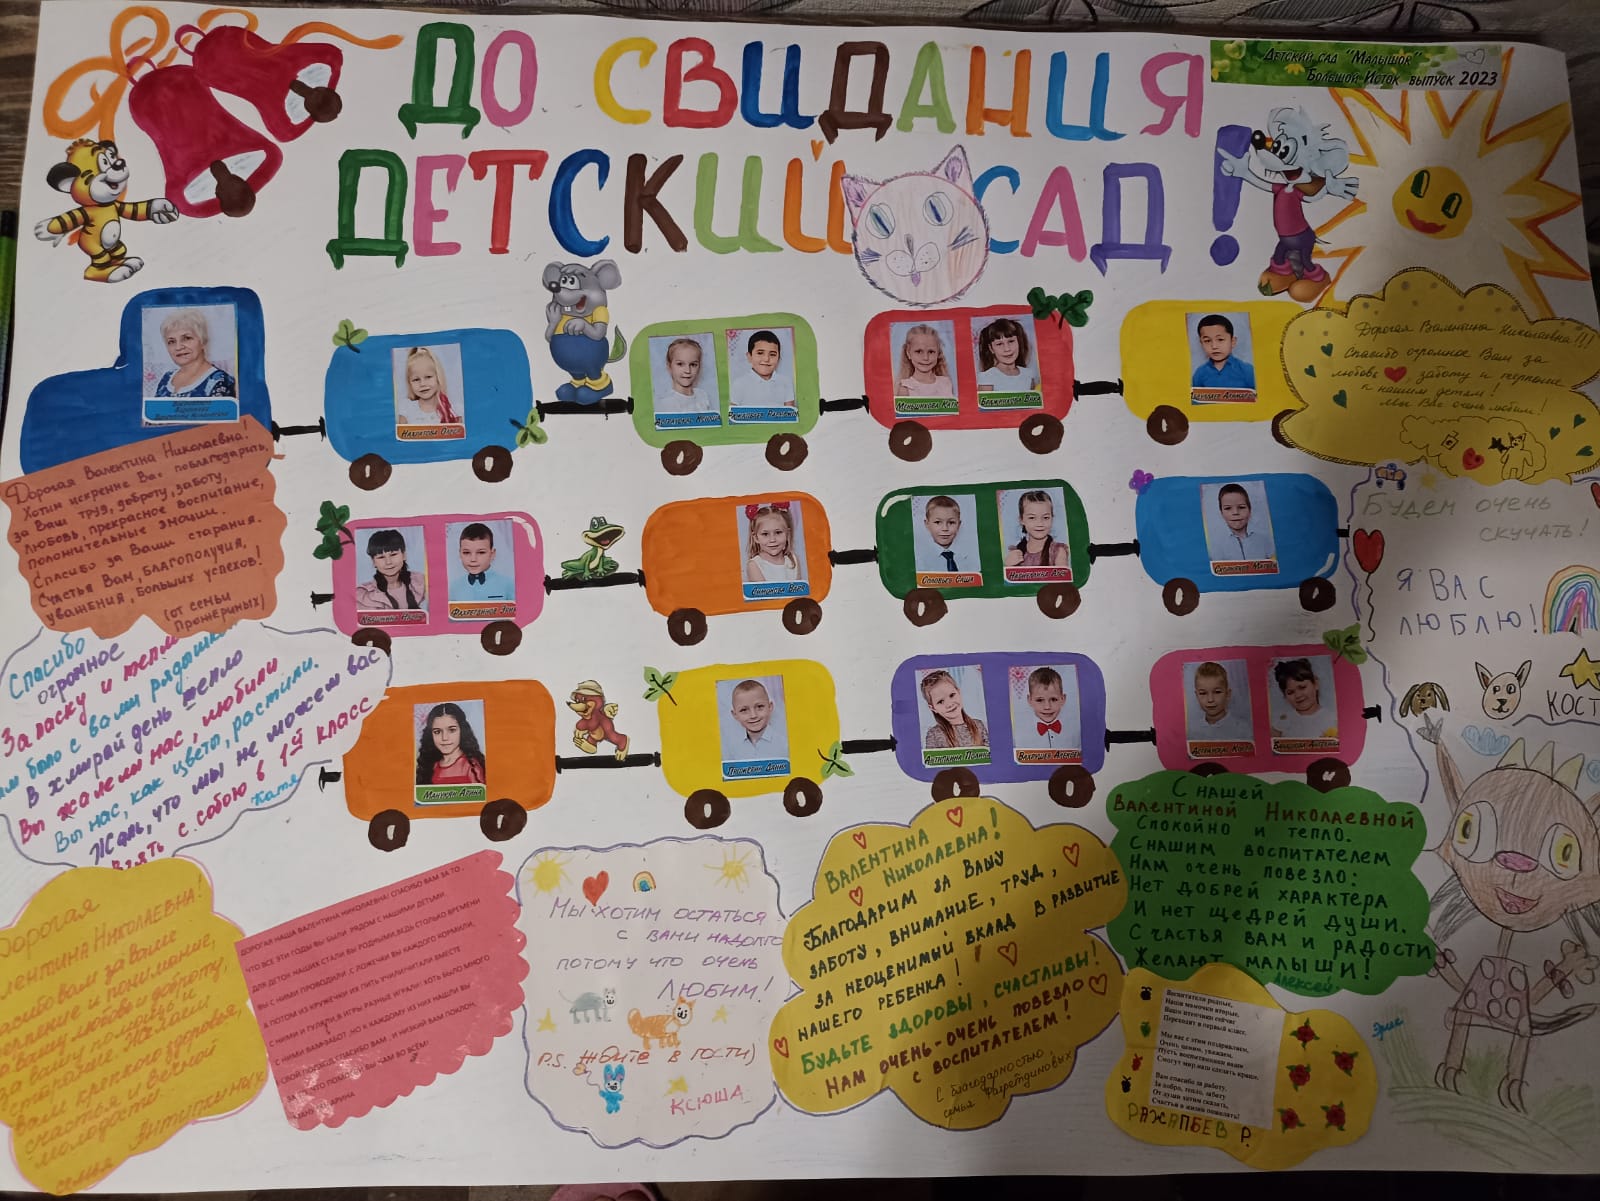 ДО СВИДАНИЯ
ДЕТСКИЙ САД!
Детский сад "Малышок"
Большой Исток выпуск 2023
Валентина Николаевна
Меньшикова
Соловьев Саша
Симонова Варя
Прожерин Данил
Дорогая Валентина Николаевна!!!
Спасибо огромное Вам за
любовь, заботу и терпение
к нашим детям!
Мы Вас очень любим!
Дорогая Валентина Николаевна!
Хотим искренне Вас поблагодарить,
за Ваш труд, доброту, заботу,
любовь, прекрасное воспитание,
положительные эмоции.
Спасибо за Ваши старания.
Счастья Вам, благополучия,
уважения, больших успехов!
(от семьи
Прожериных)
Будем очень
скучать!
Я ВАС
ЛЮБЛЮ!
КОСТ
Спасибо
огромное
За ласку и тепло
было с вами рядышком
В хмурый день тепло
Вы жалели нас, любили
Вы нас, как цветы, растили.
Жаль, что мы не можем вас
Взять с собою в 1й класс
Катя
Дорогая
лентина Николаевна!
асибо вам за ваше
терпение и понимание,
за вашу любовь и доброту,
за вашу помощь и
старание. Желаем
вам крепкого здоровья,
счастья и вечной
молодости.
семья Антипкиных
ДОРОГАЯ НАША ВАЛЕНТИНА НИКОЛАЕВНА! СПАСИБО ВАМ ЗА ТО,
ЧТО ВСЕ ЭТИ ГОДЫ ВЫ БЫЛИ РЯДОМ С НАШИМИ ДЕТЬМИ.
ДЛЯ ДЕТОК НАШИХ СТАЛИ ВЫ РОДНЫМИ, ВЕДЬ СТОЛЬКО ВРЕМЕНИ
ВЫ С НИМИ ПРОВОДИЛИ: С ЛОЖЕЧКИ ВЫ КАЖДОГО КОРМИЛИ,
А ПОТОМ ИЗ КРУЖЕЧКИ ИХ ПИТЬ УЧИЛИ! ЧИТАЛИ ВМЕСТЕ
С НИМИ И ГУЛЯЛИ, В ИГРЫ РАЗНЫЕ ИГРАЛИ! ХОТЬ БЫЛО МНОГО
С НИМИ ВАМ ЗАБОТ, НО К КАЖДОМУ ИЗ НИХ НАШЛИ ВЫ
СВОЙ ПОДХОД. СПАСИБО ВАМ, И НИЗКИЙ ВАМ ПОКЛОН,
ЗА ТО, ЧТО ПОМОГЛИ ВЫ НАМ ВО ВСЁМ!
Мы хотим остаться
с вами надолго
потому что очень
любим!
P.S. ждите в гости)
Ксюша
Валентина
Николаевна!
Благодарим за Вашу
заботу, внимание, труд,
за неоценимый вклад в развитие
нашего ребенка!
Будьте здоровы, счастливы!
Нам очень-очень повезло
с воспитателем!
С благодарностью,
семья Фахретдиновых
С нашей
Валентиной Николаевной
Спокойно и тепло.
С нашим воспитателем
Нам очень повезло:
Нет добрей характера
И нет щедрей души.
Счастья вам и радости
Желают малыши!
Алексей.
Воспитатели родные,
Наши мамочки вторые,
Ваши птенчики сейчас
Переходят в первый класс.
Мы вас с этим поздравляем,
Очень ценим, уважаем,
Пусть воспитанники ваши
Смогут мир наш сделать краше.
Вам спасибо за работу,
За добро, тепло, заботу
От души хотим сказать,
Счастья в жизни пожелать!
РАЖАПБЕВ Р.
Эрик